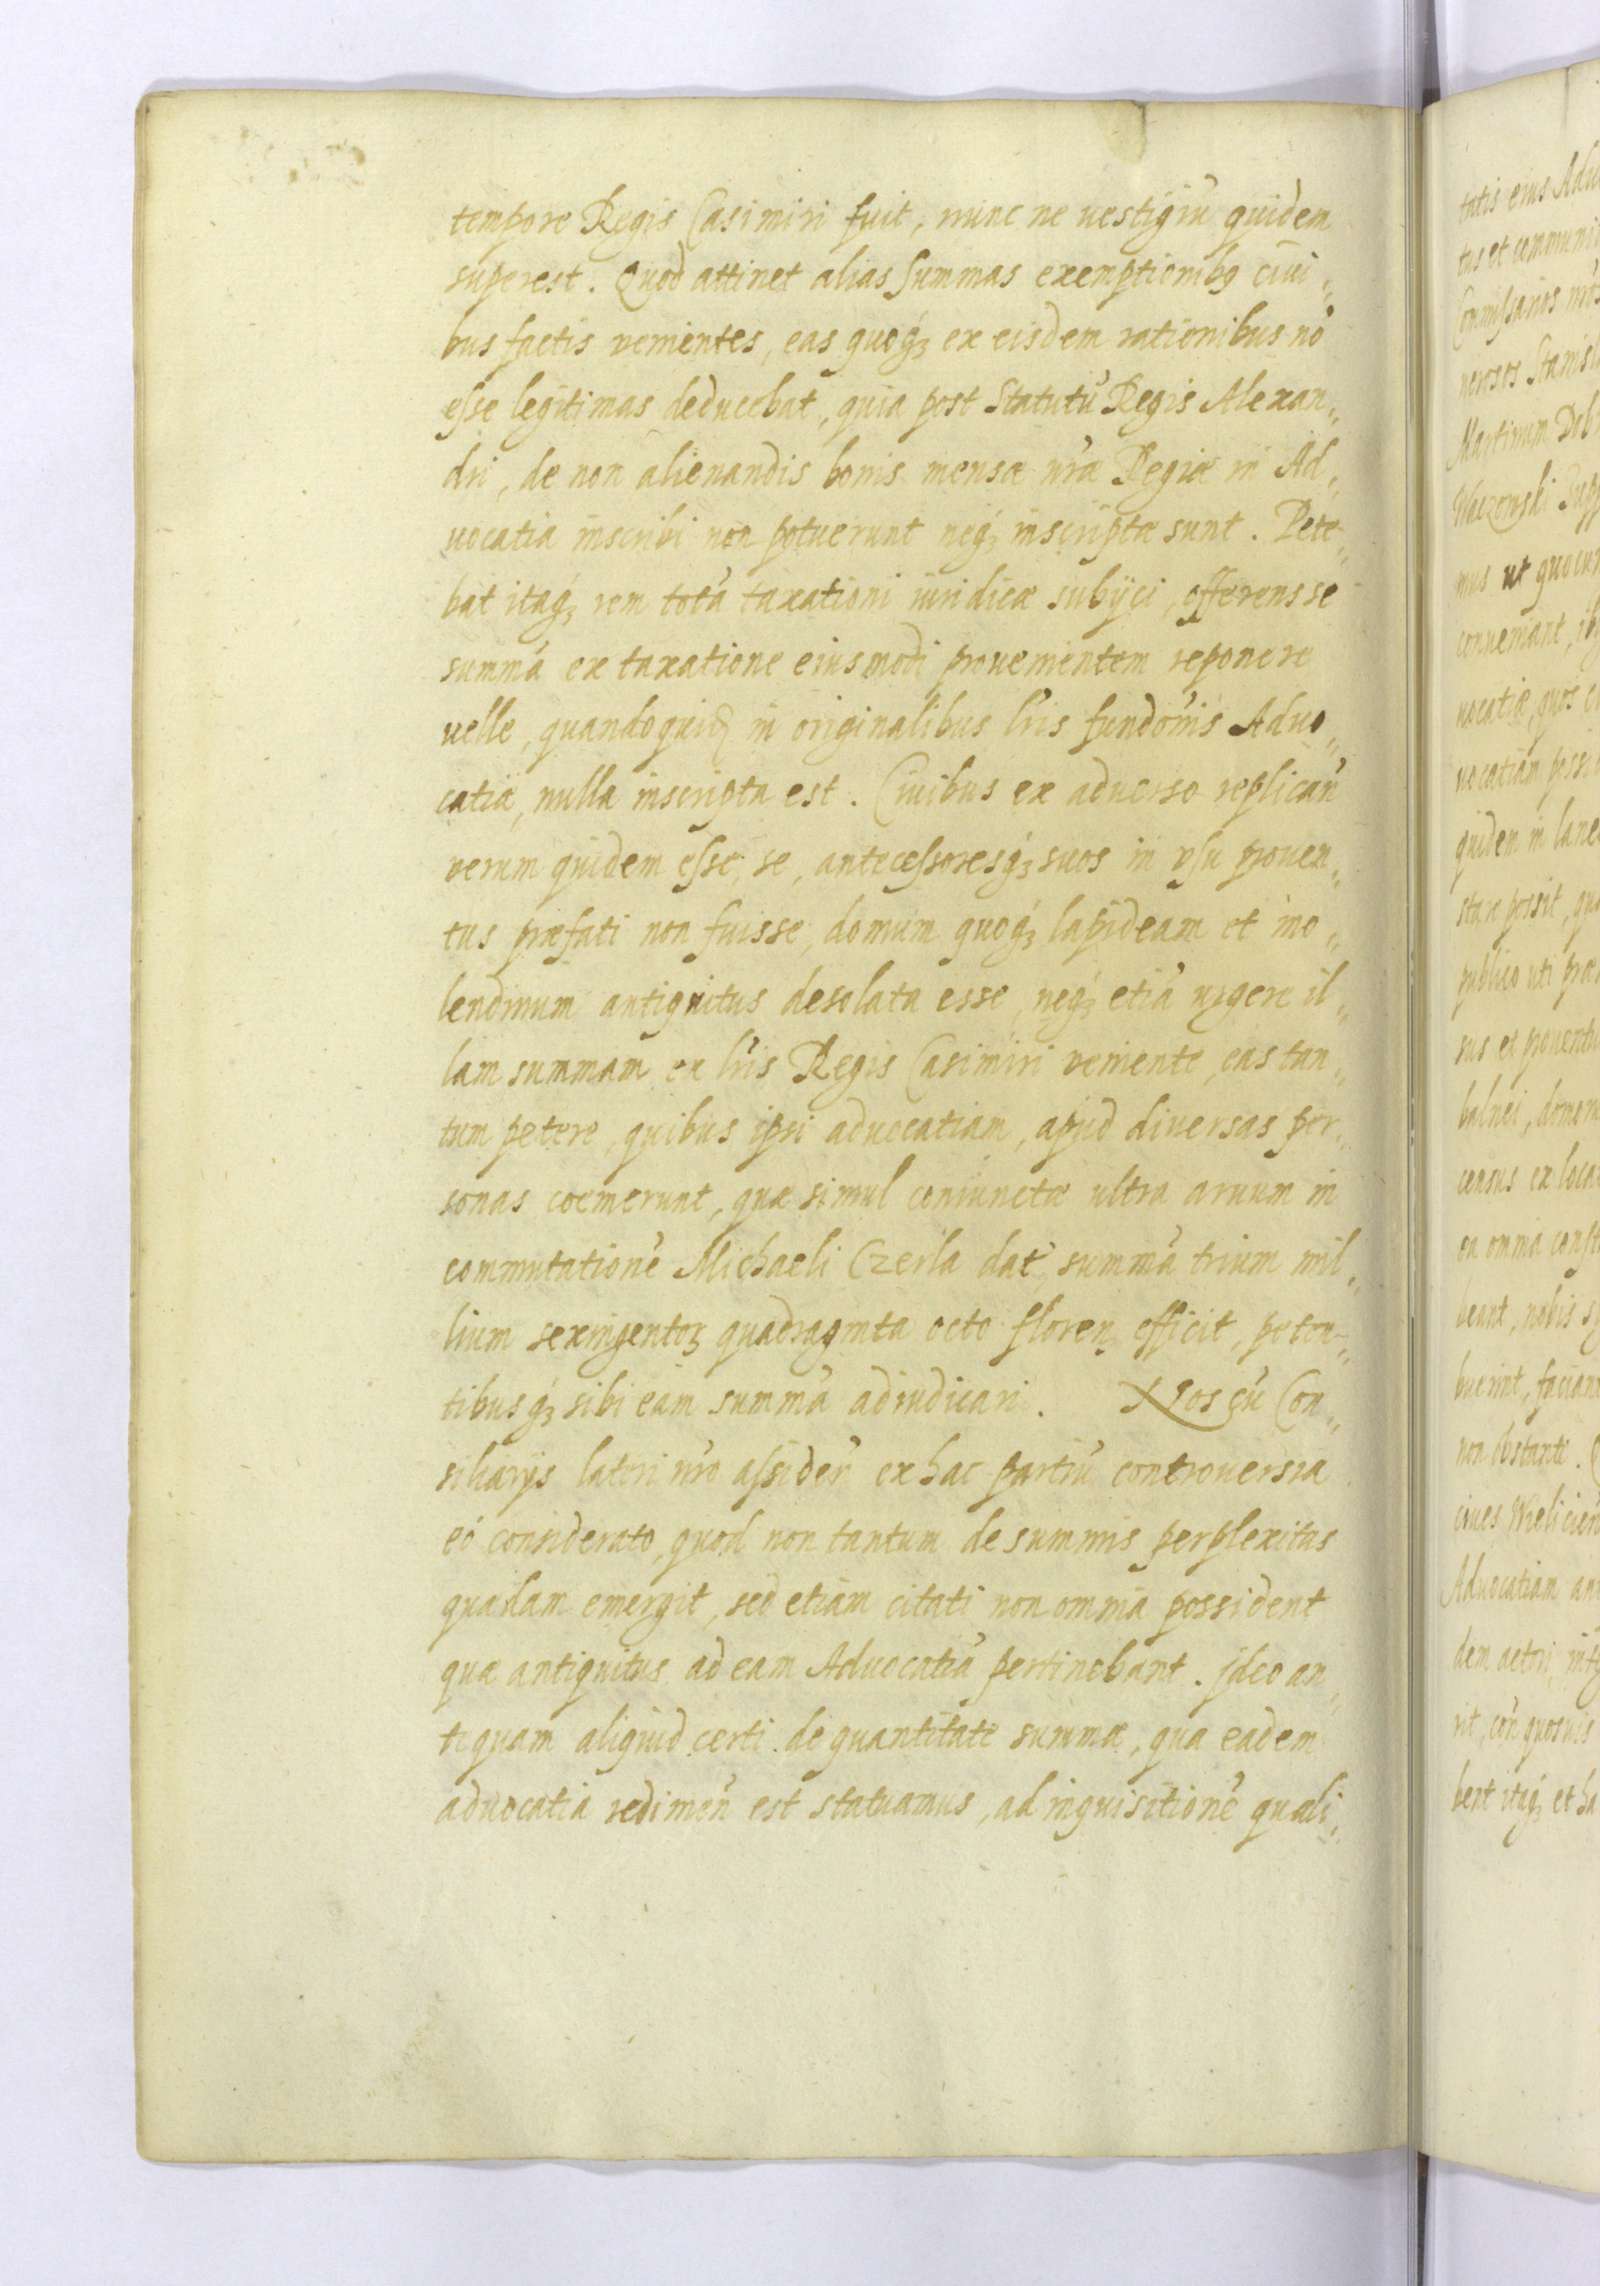 tempore Regis Casimiri fuit, nunc ne vestigiũ quidem
superest. Quod attinet alias summas exemptionibꝰ ciui„
bus factis venientes, eas quoqꝫ ex eisdem rationibus nõ
esse legitimas deducebat, quia post Statutũ Regis Alexan„
dri, de non alienandis bonis mensæ nr̃æ Regiæ in Ad„
uocatia inscribi non potuerunt neqꝫ inscriptæ sunt. Pete„
bat itaqꝫ rem totã taxationi iuridicæ subijci, offerens se
summã ex taxatione eiusmodi prouenientem reponere
uelle, quandoquid in originalibus lr̃is fundõnis Aduo„
catiæ, nulla inscripta est. Ciuibus ex aduerso replicañ
verum quidem esse, se, antecessoresqꝫ suos in vsu prouen„
tus præfati non fuisse, domum quoqꝫ lapideam et mo„
lendinum antiquitus desolata esse, neqꝫ etiã urgere il„
lam summam ex lr̃is Regis Casimiri veniente, eas tan„
tum petere, quibus ipsi aduocatiam, apud diuersas per„
sonas coemerunt, quæ simul coniunctæ ultra aruum in
commutationẽ Michaeli Czerla dat, summã trium mil„
lium sexingentoꝝ quadraginta octo floren efficit, peten„
tibusqꝫ sibi eam summã adiudicari. Nos cũ Con„
siliarijs lateri nr̃o assideñ ex hac partiũ controuersia
eó considerato, quod non tantum de summis perplexitas
quædam emergit, sed etiam citati non omnia possident
quæ antiquitus ad eam Aduocatiã pertinebant. Ideo an„
tequam aliquid certi de quantitate summæ, qua eadem
aduocatia redimeñ est statuamus, ad inquisitionẽ quali„
tatis eius Adu
tus et communi
Commissarios nr̃
uersos Stanisl
Martinum Dob
mus ut quocun
conueniant, ib
uocatiæ, quos
uocatiam poss
quidem in lane
stare possit, qu
publico uti præ
sus et prouentu
balnei, domor
census ex loca
ea omnia const
beant, nobis
buerint, faciant
non obstante.
ciues Wielicieñ
Aduocatiam an
dam actori, int
rit, coñ quosuis
bent itaqꝫ et ha